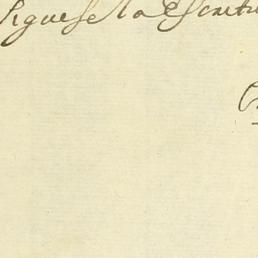 Siguese la Escritu